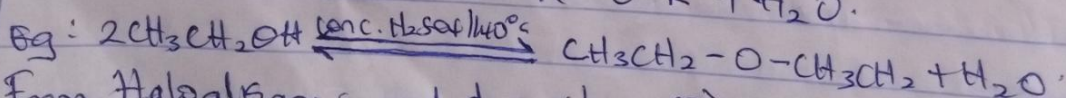 H₂O.
Eg: 2CH₃CH₂OH conc. H₂SO₄/140°C CH₃CH₂-O-CH₃CH₂ + H₂O.
From